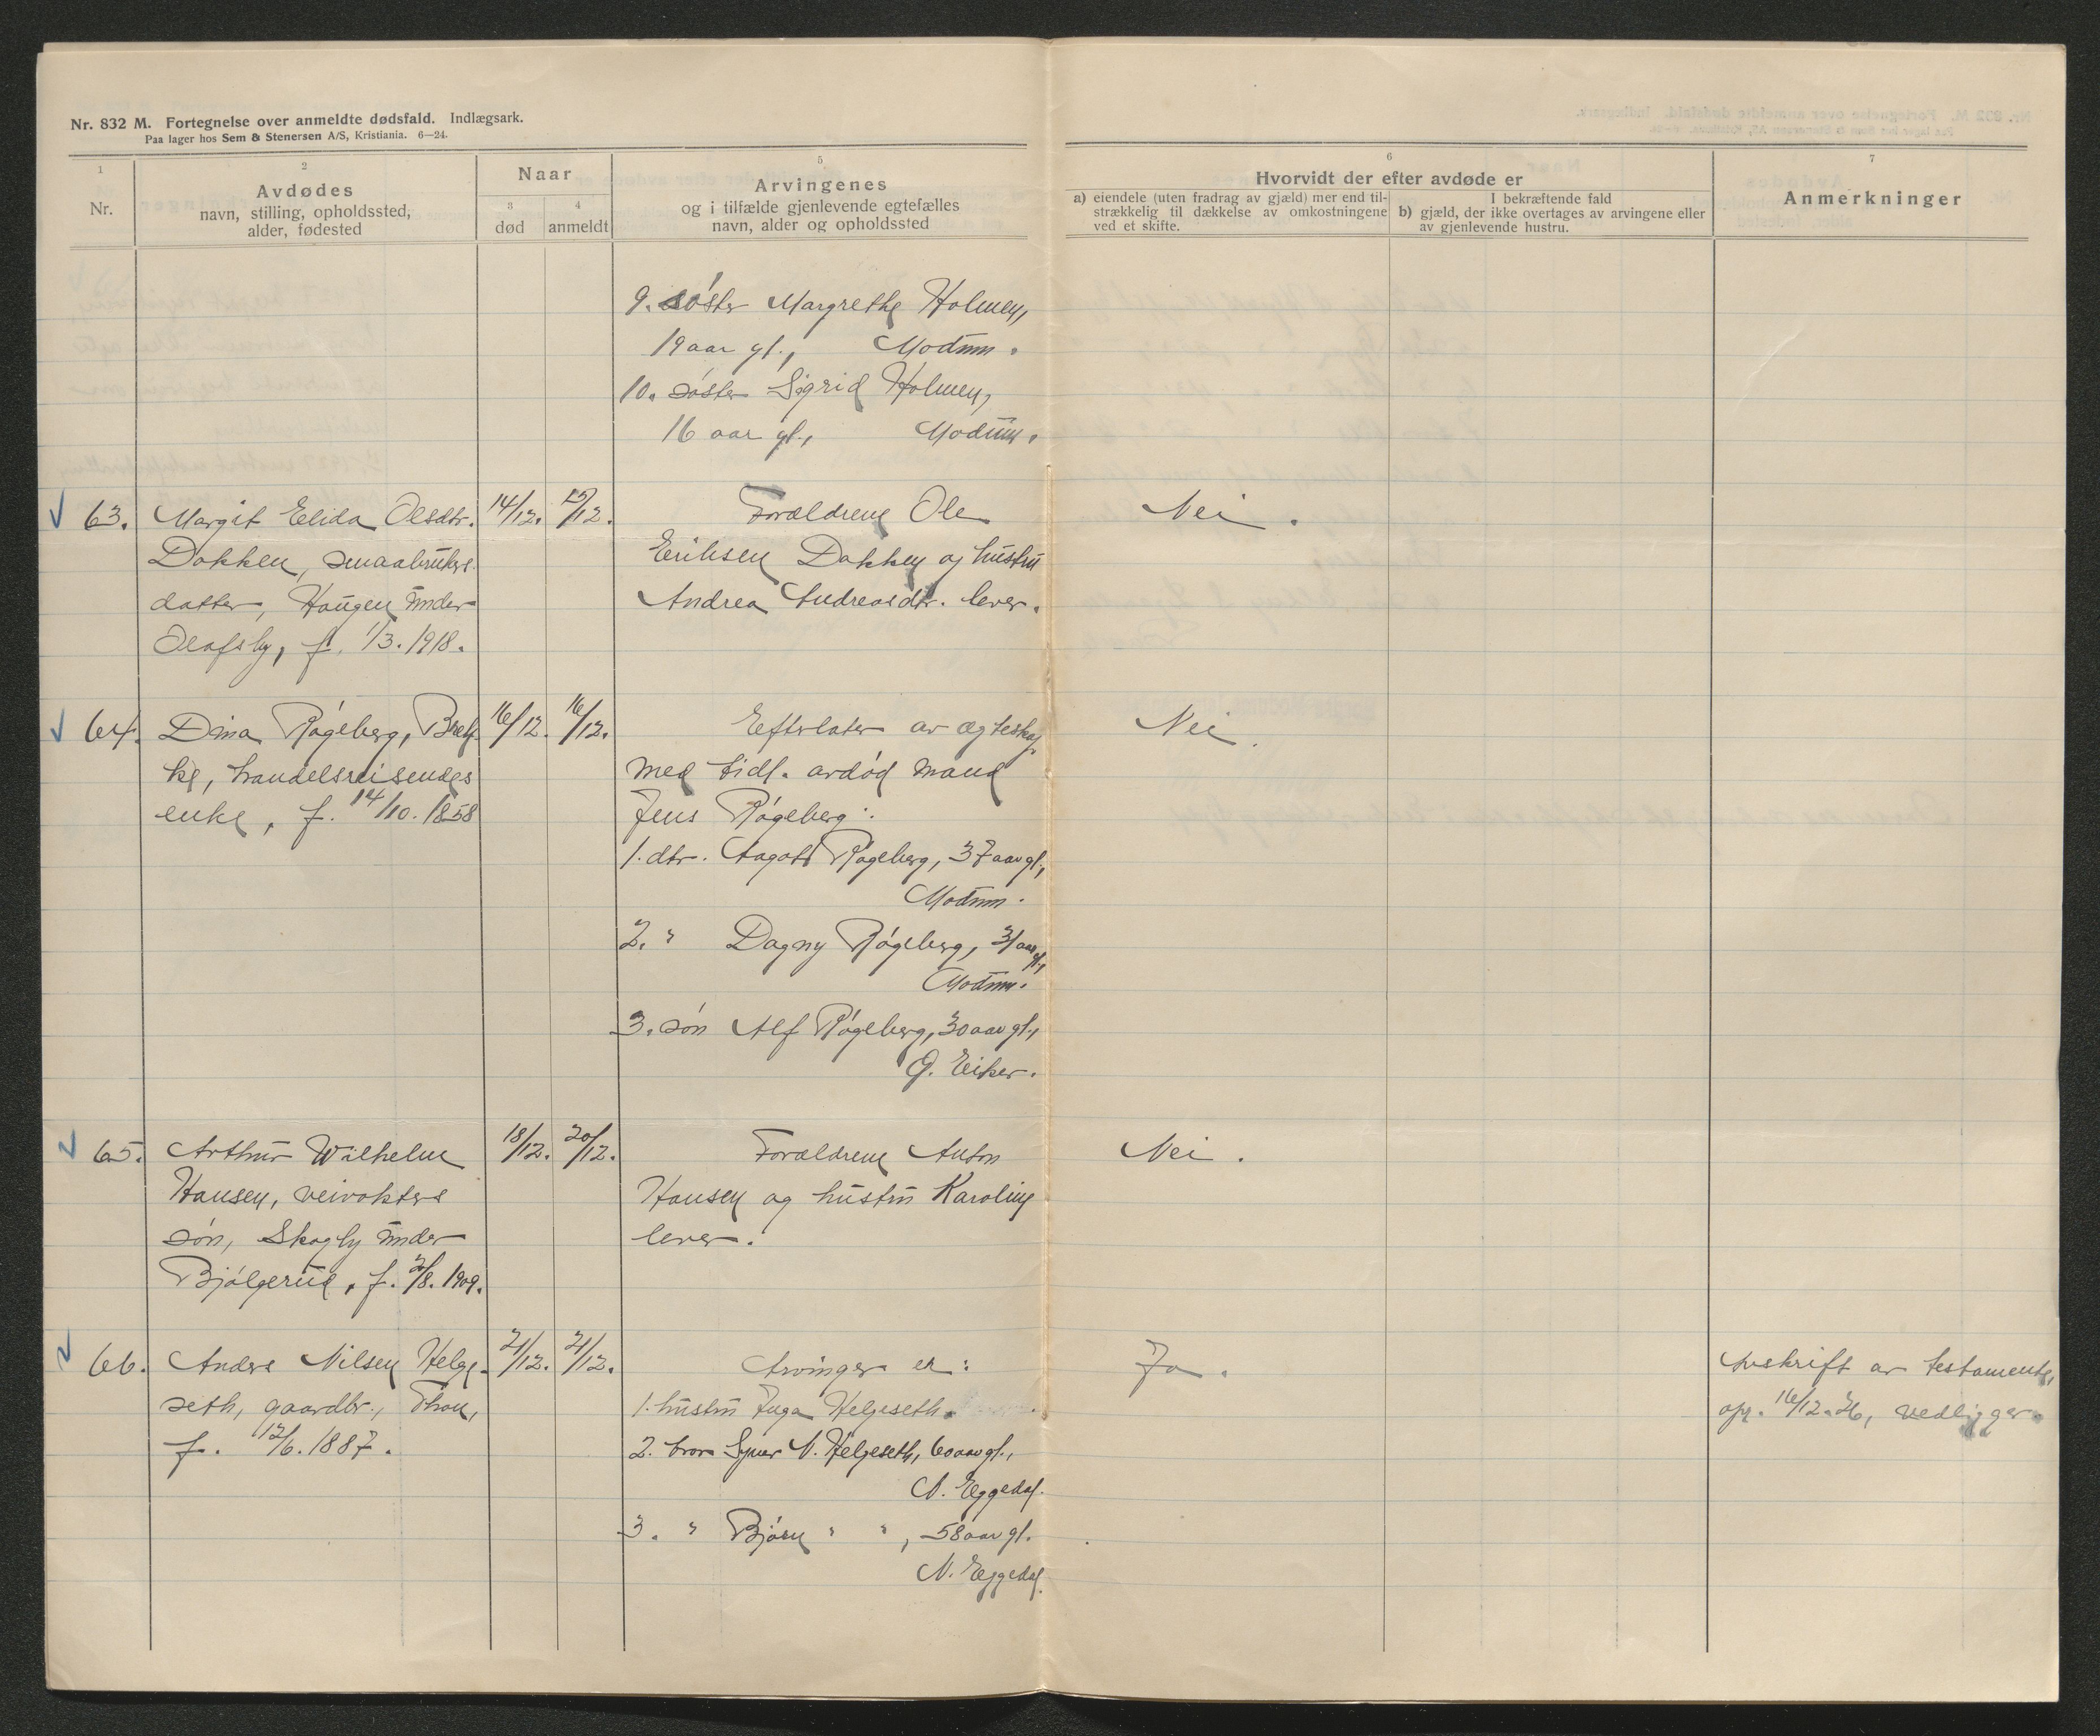 Nr. 832 M. Fortegnelse over anmeldte dødsfald. Indlægsark.
Paa lager hos Sem & Stenersen A/S, Kristiania. 6—24.
1
Nr.
2
Avdødes
navn, stilling, opholdssted,
alder, fødested
Naar
3
død
4
anmeldt
5
Arvingenes
og i tilfælde gjenlevende egtefælles
navn, alder og opholdssted
6
Hvorvidt der efter avdøde er
a) eiendele (uten fradrag av gjæld) mer end til-
strækkelig til dækkelse av omkostningene
ved et skifte.
I bekræftende fald
b) gjæld, der ikke overtages av arvingene eller
av gjenlevende hustru.
7
Anmerkninger
9. søster Margrethe Holmen,
19 aar gl., Modum.
10. søster Sigrid Holmen,
16 aar gl., Modum.
63. Margit Elida Olsdtr. 14/12. 15/12. Forældrene Ole Nei.
Dokken, smaabrukers Eriksen Dokken og hustru
datter, Haugen under Andrea Andreasdtr. lever.
Olafsby, f. 1/3. 1918.
64. Dina Røgeberg, Bret- 16/12. 16/12. Efterlater av ægteskap Nei.
ke, handelsreisendes med tidl. avdød mand
enke, f. 14/10. 1858 Jens Røgeberg:
1. dtr. Aagot Røgeberg, 37 aar gl.,
Modum.
2. " Dagny Røgeberg, 31 aar gl.,
Modum.
3. søn Alf Røgeberg, 30 aar gl.,
Ø. Eiker.
65. Arthur Wilhelm 18/12. 20/12. Forældrene Anton Nei.
Hansen, veivokters Hansen og hustru Karoline
søn, Skogly under lever.
Bjølgerud, f. /8. 1909.
66. Anders Nilsen Helge- 21/12. 21/12. Arvinger er: Ja. Avskrift av testamente,
seth, gaardbr., Thon, 1. hustru Inga Helgeseth. opr. 16/12.26, vedligger.
f. 12/6. 1887. 2. bror Syver N. Helgeseth, 60 aar gl.,
N. Eggedal.
3. " Bjørn " " , 58 aar gl.
N. Eggedal.